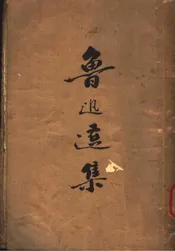 魯迅選集